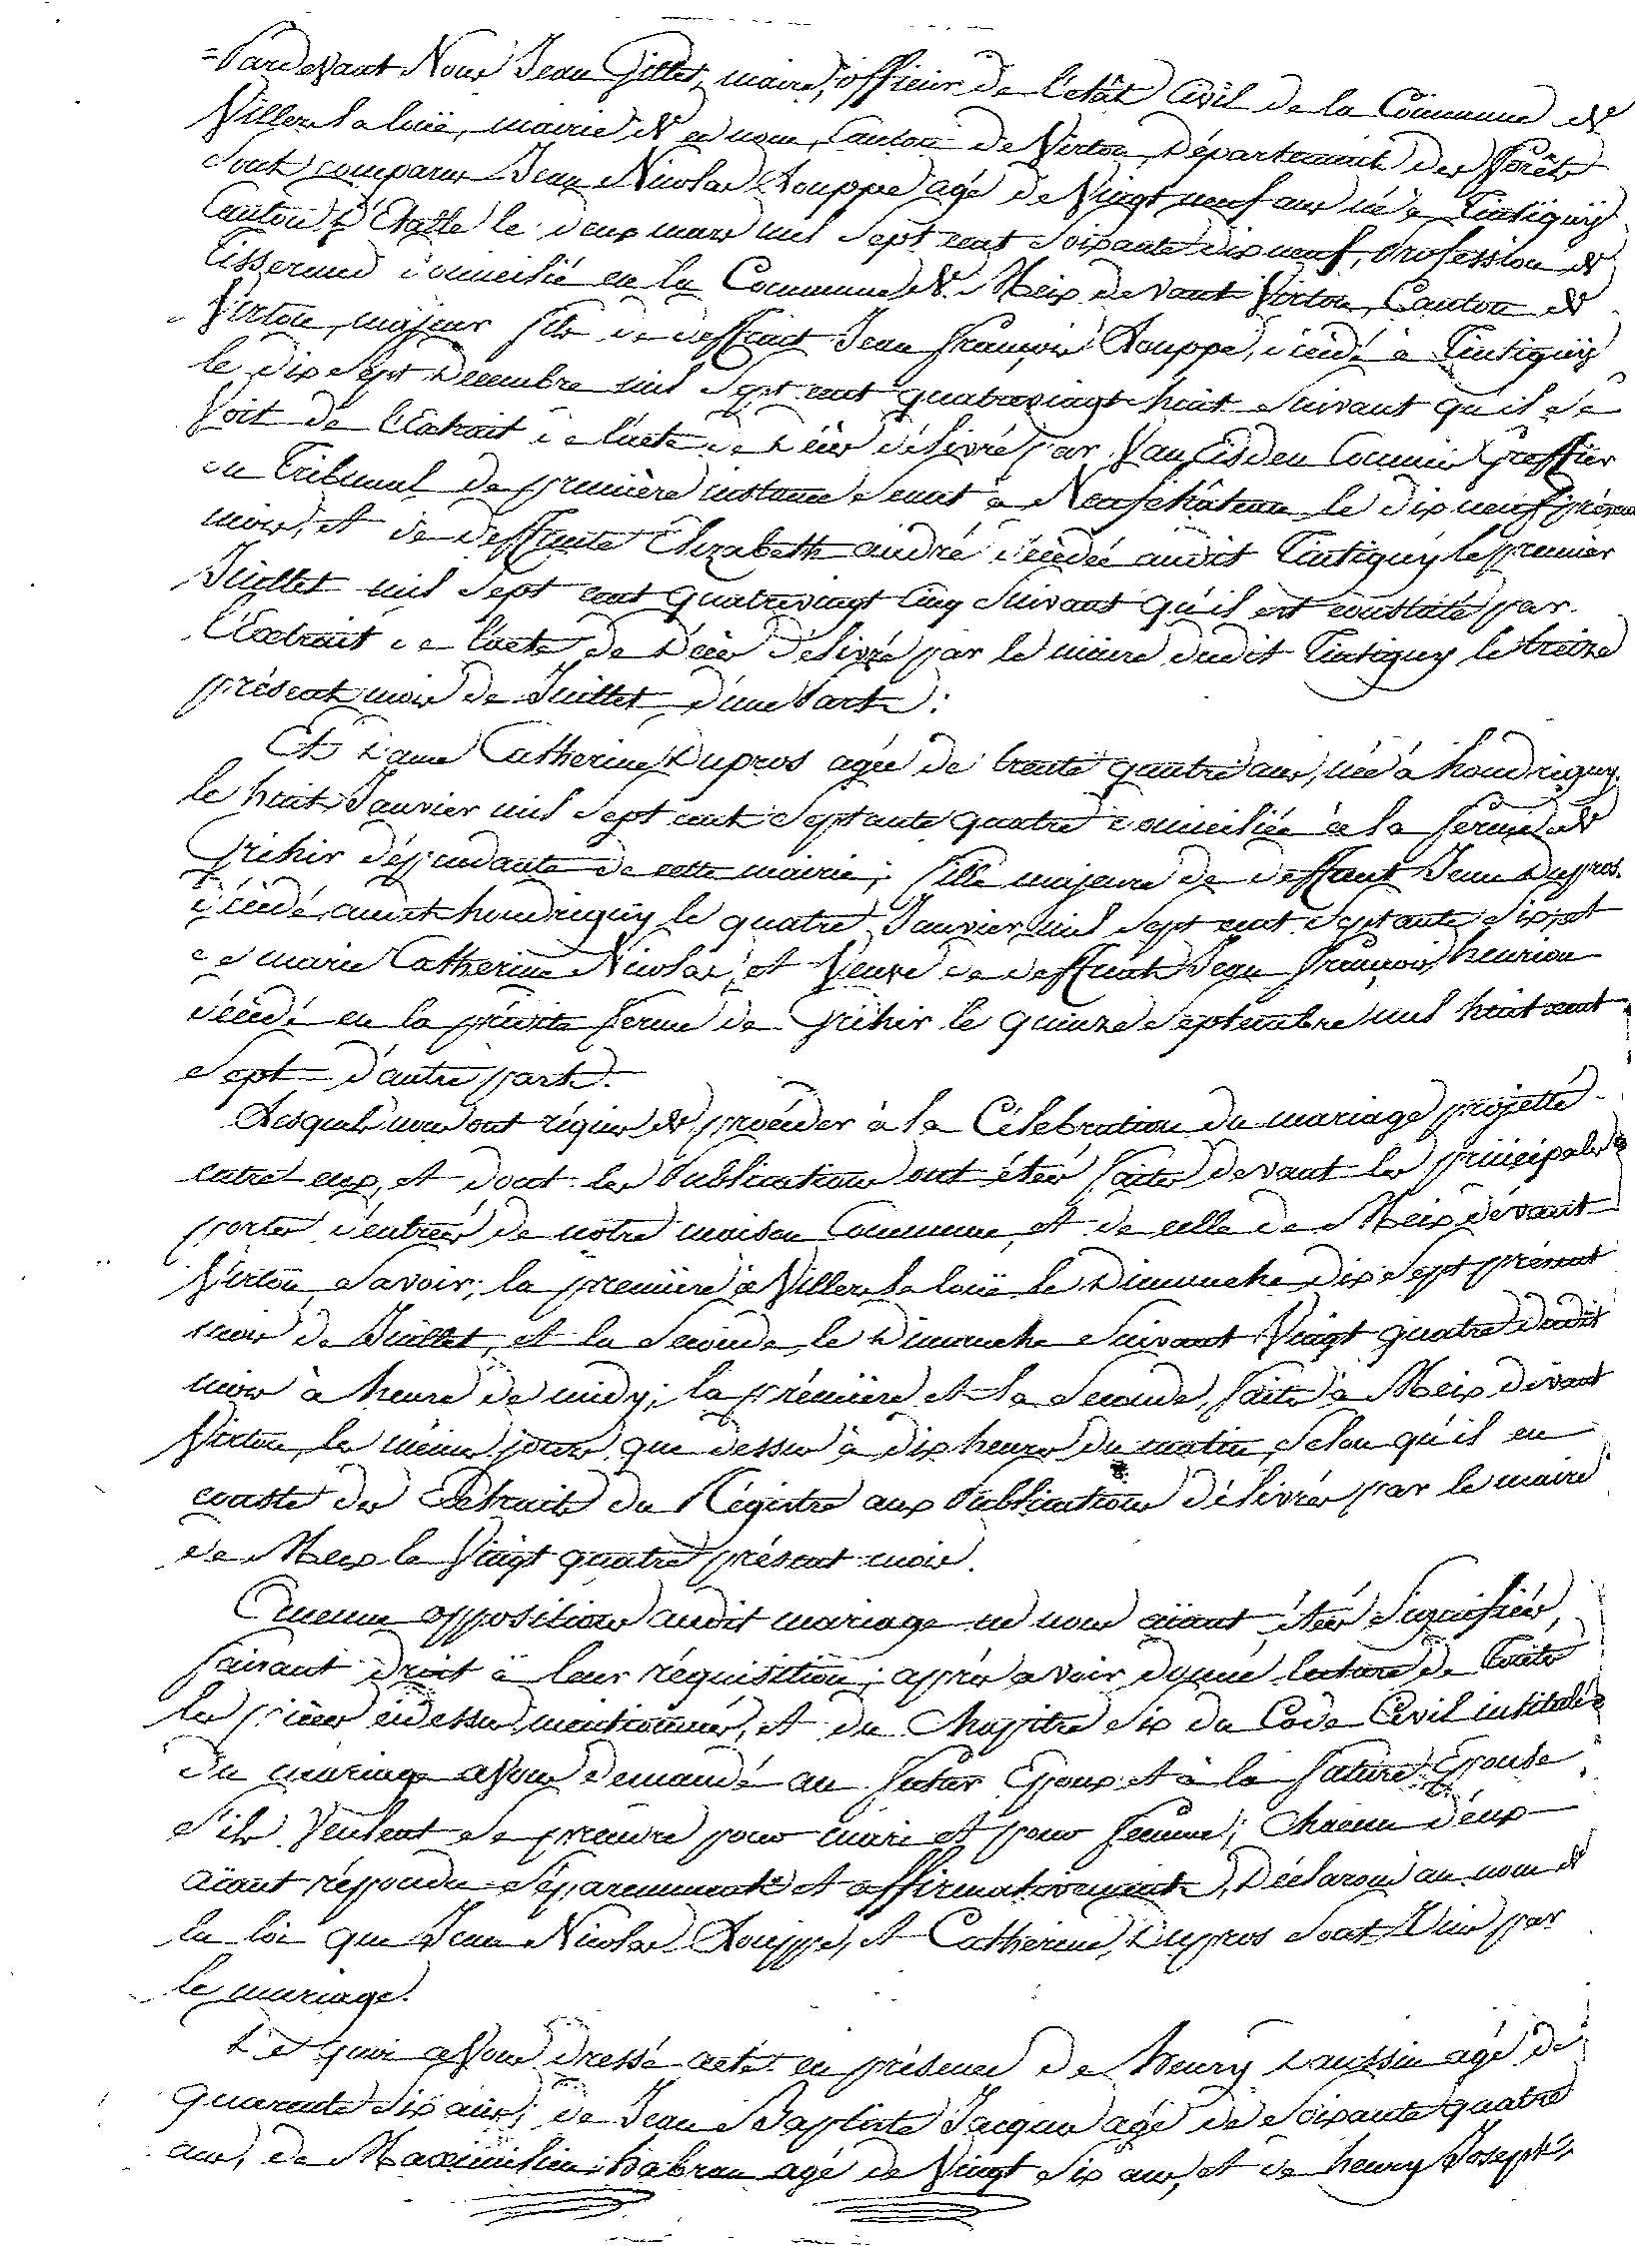 =Pardevant Nous Jean Gillet, maire, officier de L'etât Civil de la Commune de
Villers la louë, mairie de ce nom, Canton de Virton Département des Forêts
Sont comparus Jean Nicolas Louppe agé de Vingt neuf ans né à Tintignÿ
Canton d'Etalle le deux mars mil Sept cent Soixante dix neuf, profession de
Tisserand domicilié en la Commune de Meix devant Virton, Canton de
Virton, majeur fils de deffunt Jean françois Louppe, décédé à Tintignÿ
le dix Sept Décembre mil Sept cent quatrevingt huit Suivant qu'il se
Voit de l'Extrait de l'acte de Décès délivré par Van Eisden Commis Greffier
du Tribunal de première instance Seant à Neufchâteau le dix neuf présent
mois, et de deffunte Elizabeth andré décédée audit Tintigny le premier
Juillet mil Sept cent quatrevingt cinq Suivant qu'il est constaté par
l'Extrait de l'acte de Décès délivré par le maire dudit Tintigny le treize
présent mois de Juillet d'une Part:
Et Dame Catherine Dupros agée de trente quatre ans, née à houdrigny
le huit Janvier mil Sept cent Septante quatre domiciliée à la ferme de
Grihir dépendante de cette mairie; fille majeure de deffunt Jean Dupros
décédé audit houdrignÿ le quatre Janvier mil Sept cent Septante Six, et
de marie Catherine Nicolas, et Veuve de deffunt Jean françois henrion
décédé en la prédite ferme de Grihir le quinze Septembre mil huit cent
Sept d'autre part.
Lesquels nous ont réquis de procéder à la Célébration du mariage projetté
entre eux, et dont les Publications ont étés faites devant les principales
portes d'entrées de notre maison Commune, et de celle de Meix dévant
Virton, Savoir; la premiere à Villers la louë le Dimanche dix Sept présent
mois de Juillet, et la Seconde le Dimanche Suivant Vingt quatre dudit
mois à heure de midy; la prémiere et la Seconde, faite à Meix dévant
Virton, les mêmes jours que dessus à dix heures du matin, Selon qu'il en
conste des Extraits du Régistre aux Publications délivrés par le maire
de Meix le Vingt quatre présent mois.
Aucune oppositions audit mariage ne nous aïant étées Signifiées,
faisant droit à leur réquisition; après avoir donné lecture de Toutes
les pièces cidessus mentionnées, et du Chapitre Six du Code Civil intitulé
du mariage avons demandé au futur Epoux et à la future Epouse
S'ils Veulent se prendre pour mari et pour femme; Chacun d'eux
aïant répondu Séparemment et affirmativement, Déclarons au nom de
la loi que Jean Nicolas Louppe, et Catherine Dupros Sont Unis par
le mariage.
De quoi avons dressé acte en présence de henry Daussin agé de
quarante Six ans; de Jean Baptiste Jacques agé de Soixante quatre
ans, de Maximilien habran agé de Vingt Six ans, et de henry Joseph